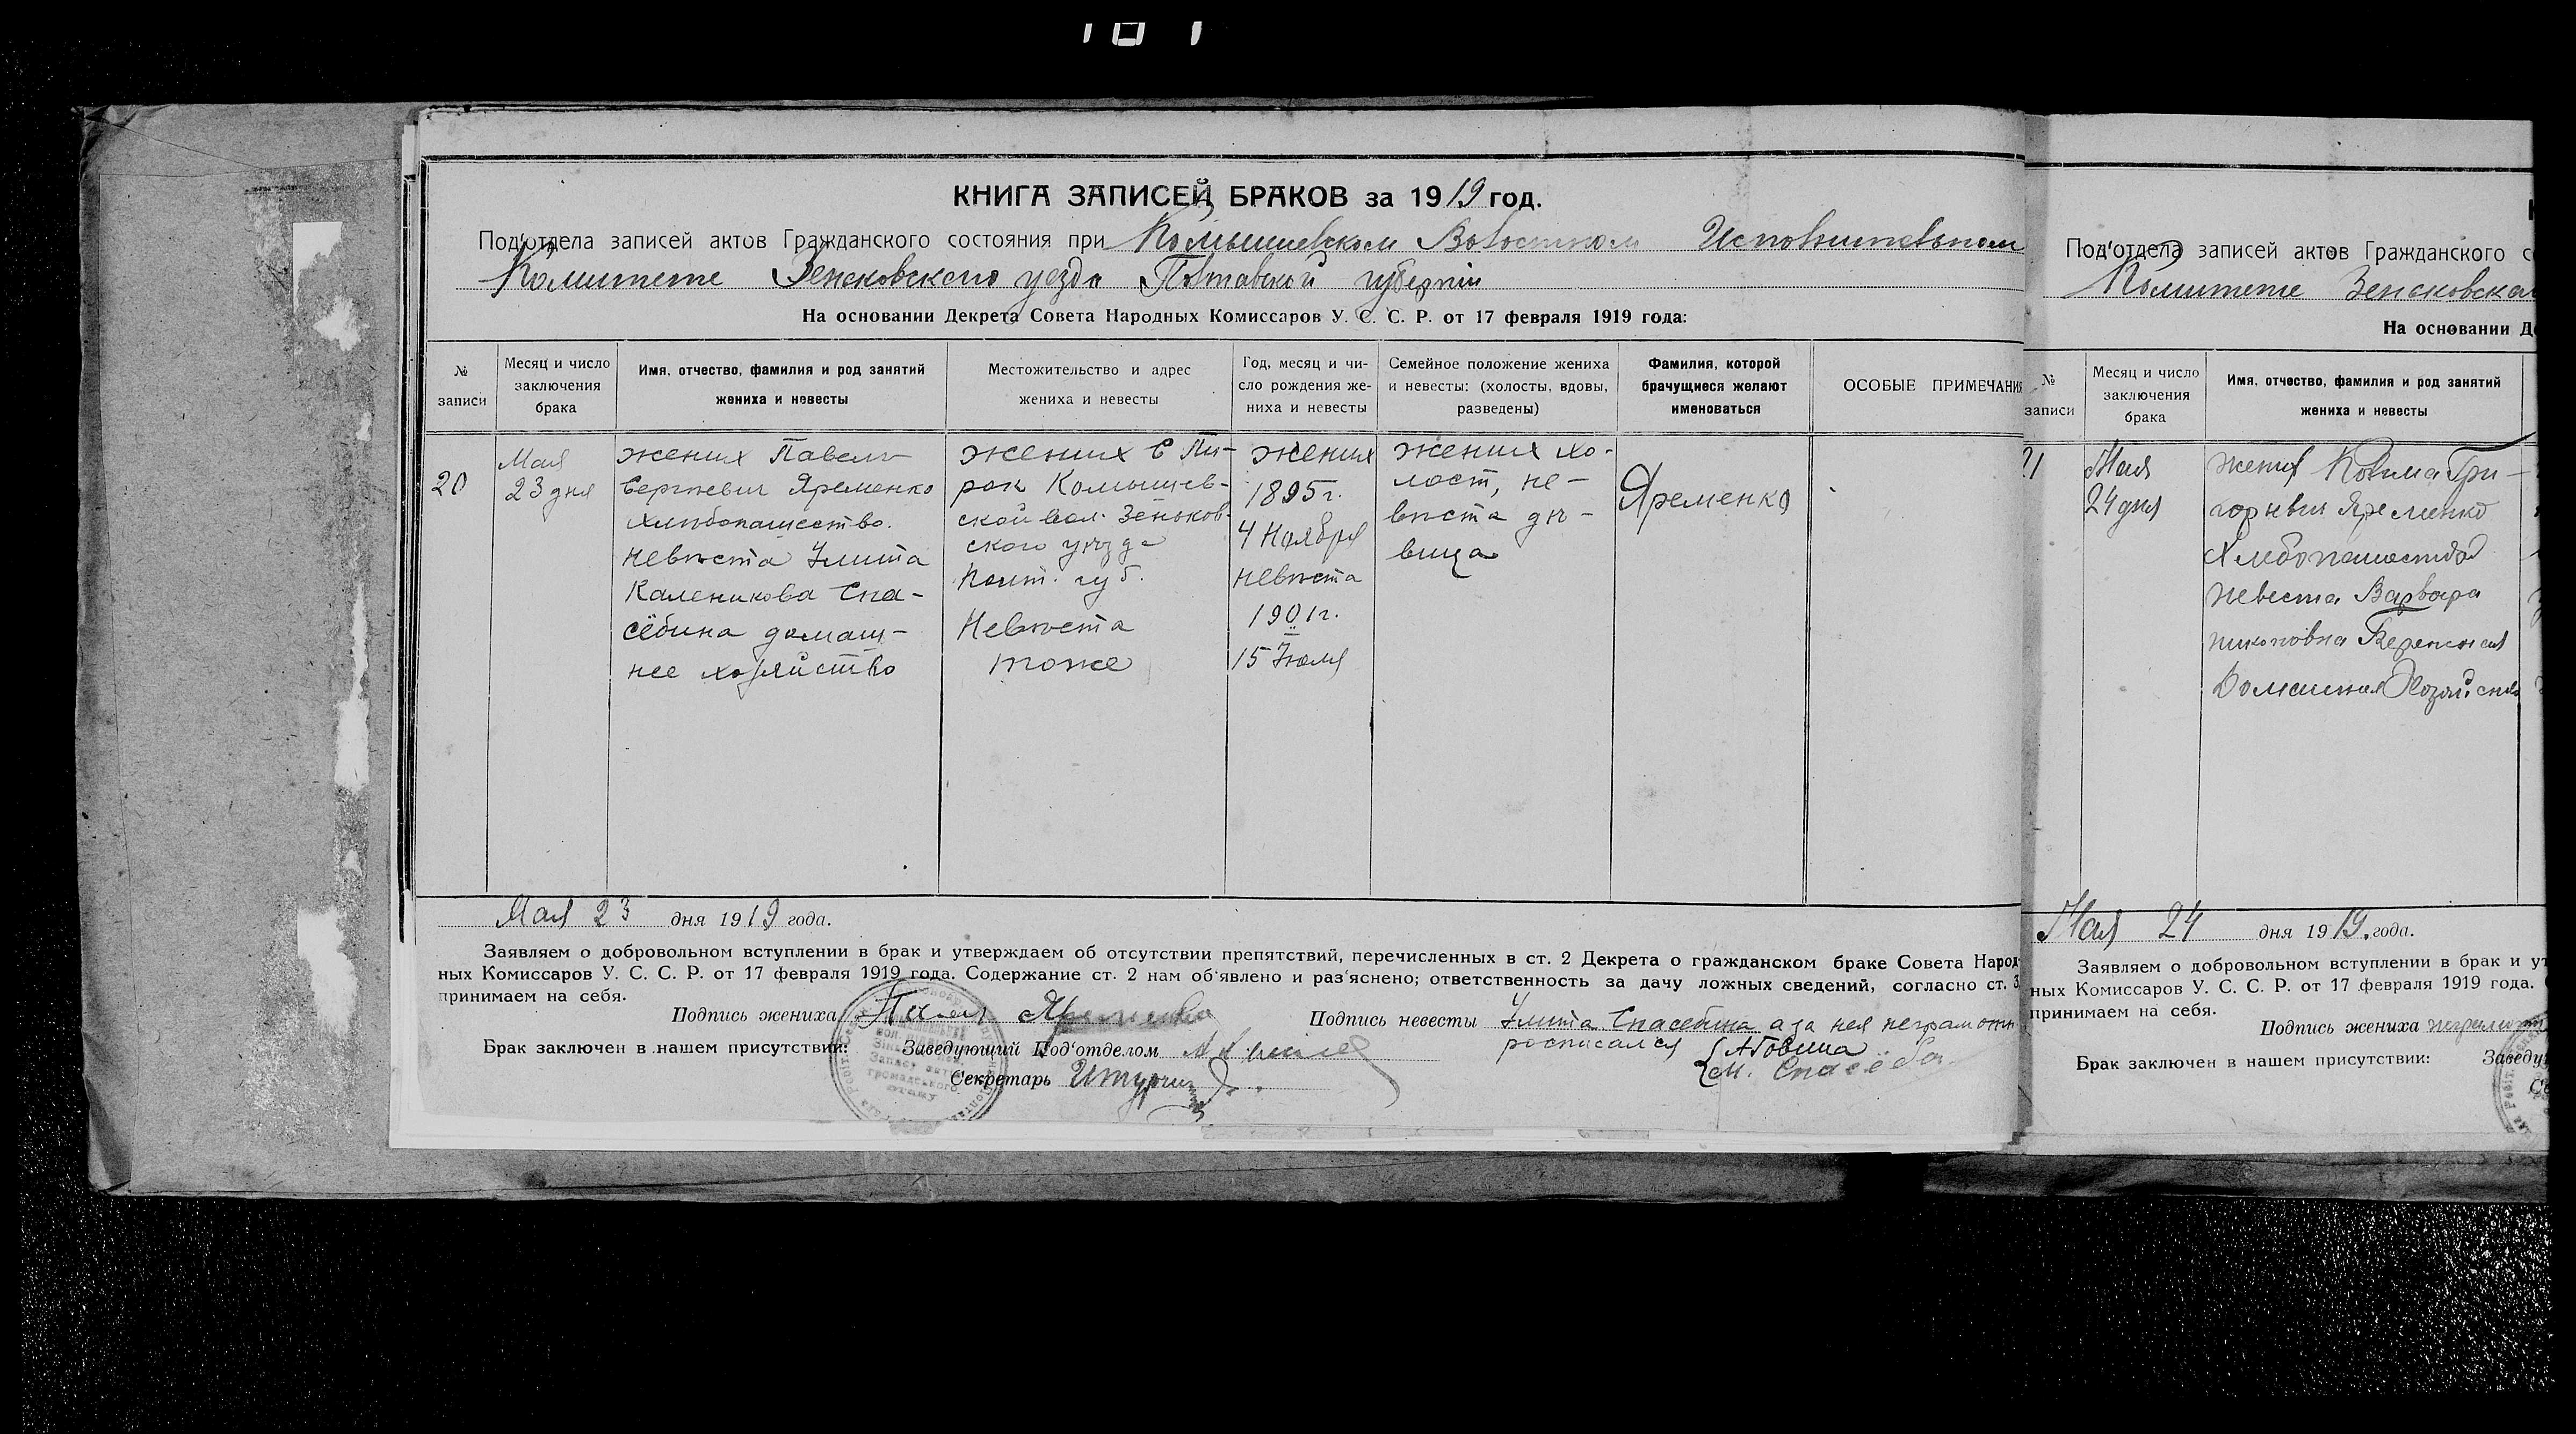 КНИГА ЗАПИСЕЙ БРАКОВ за 1919 год.
Под'отдела записей актов Гражданского состояния при Комышевском Волостном Исполнительном
Комитете Зеньковского уезда Полтавской губернии
На основании Декрета Совета Народных Комиссаров У. С. С. Р. от 17 февраля 1919 года:
№ записи
Месяц и число
заключения
брака
Имя, отчество, фамилия и род занятий
жениха и невесты
Местожительство и адрес
жениха и невесты
Год, месяц и чи-
сло рождения же-
ниха и невесты
Семейное положение жениха
и невесты: (холосты, вдовы,
разведены)
Фамилия, которой
брачущиеся желают
именоваться
ОСОБЫЕ ПРИМЕЧАНИ
20
Мая
23 дня
жених Павел
Сергѣевич Яременко
хлѣбопашество.
невѣста Улита
Каленикова Спа-
сёбина домаш-
нее хозяйство
жених С Пи-
рок Комышев-
ской вол. Зеньков-
ского уѣзда
Полт. губ.
Невѣста
тоже
жених
1895 г.
4 Ноября
невѣста
1901 г.
15 Июля
жених хо-
лост, не-
вѣста дѣ-
вица
Яременко
Мая 23 дня 1919 года.
Заявляем о добровольном вступлении в брак и утверждаем об отсутствии препятствий, перечисленных в ст. 2 Декрета о гражданском браке Совета Народ-
ных Комиссаров У. С. С. Р. от 17 февраля 1919 года. Содержание ст. 2 нам об'явлено и раз'яснено; ответственность за дачу ложных сведений, согласно ст. 3
принимаем на себя.
Подпись жениха Павел Яременко
Подпись невесты Улита Спасебина а за нея неграмотн
росписался
М. Спасёба
Брак заключен в нашем присутствии: Заведующий Под'отделом
Секретарь
Под'отдела записей актов Гражданского с
Комитете Зеньковска
На основании Д
№
записи
Месяц и число
заключения
брака
Имя, отчество, фамилия и род занятий
жениха и невесты
21
Мая
24 дня
жених Косьма Гри-
горьевич Яременко
Хлебопашество
невеста Варвара
Домашнее Хозяйство
Мая 24 дня 1919. года.
Заявляем о добровольном вступлении в брак и ут
ных Комиссаров У. С. С. Р. от 17 февраля 1919 года.
принимаем на себя.
Подпись жениха неграмот
Брак заключен в нашем присутствии: Заведу